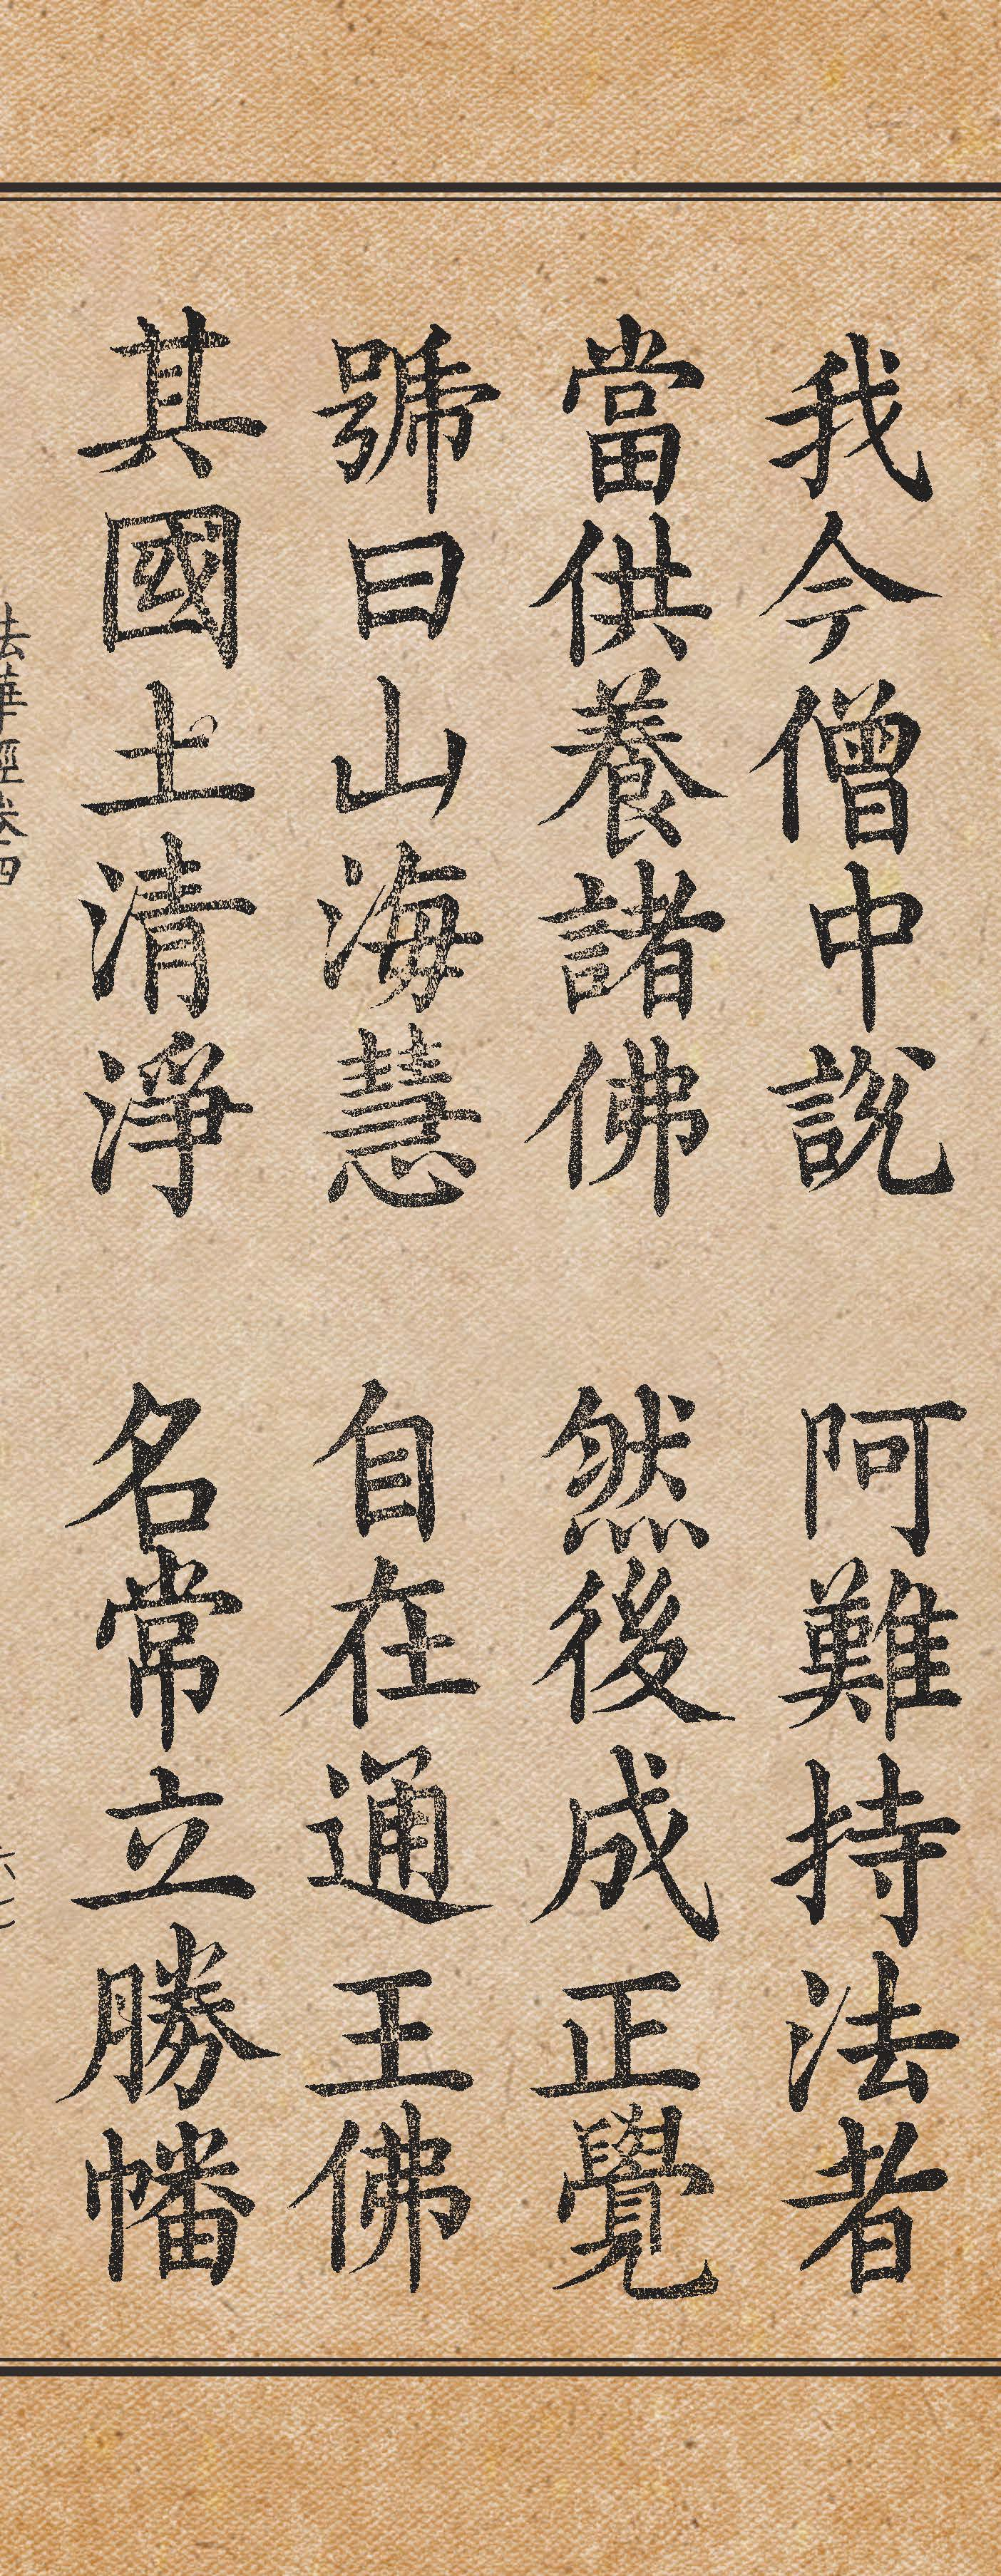 我今僧中說 阿難持法者
當供養諸佛 然後成正覺
號曰山海慧 自在通王佛
其國土清淨 名常立勝幡
法華經卷四